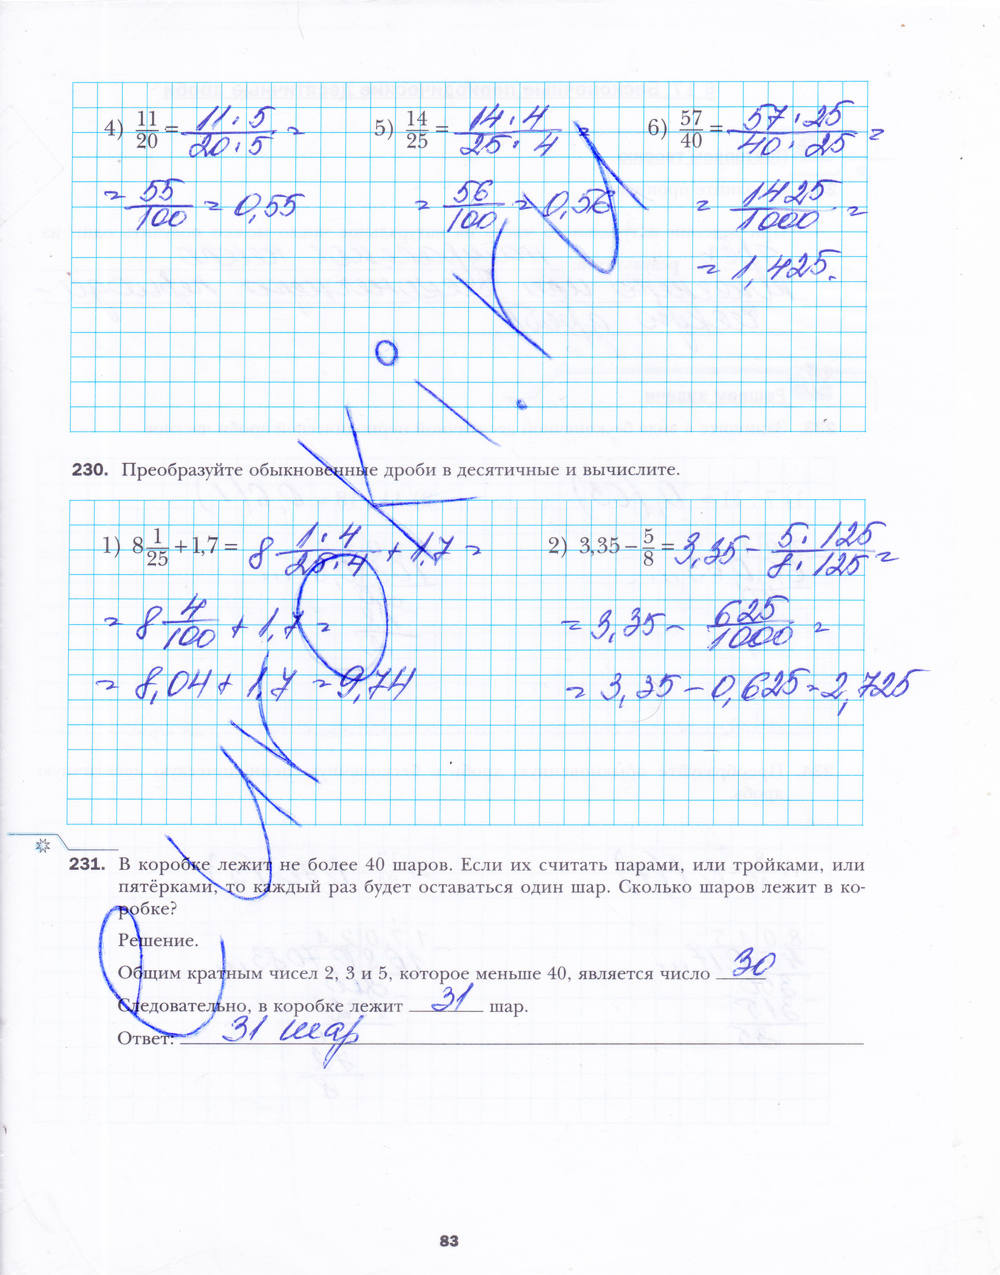 4) 11/20 = 11·5/20·5 =
= 55/100 = 0,55
5) 14/25 = 14·4/25·4 =
= 56/100 = 0,56
6) 57/40 = 57·25/40·25 =
= 1425/1000 =
= 1,425.
230. Преобразуйте обыкновенные дроби в десятичные и вычислите.
1) 8 1/25 + 1,7 = 8 1·4/25·4 + 1,7 =
= 8 4/100 + 1,7 =
= 8,04 + 1,7 = 9,74
2) 3,35 − 5/8 = 3,35 − 5·125/8·125 =
= 3,35 − 625/1000 =
= 3,35 − 0,625 = 2,725
231. В коробке лежит не более 40 шаров. Если их считать парами, или тройками, или
пятёрками, то каждый раз будет оставаться один шар. Сколько шаров лежит в ко-
робке?
Решение.
Общим кратным чисел 2, 3 и 5, которое меньше 40, является число 30
Следовательно, в коробке лежит 31 шар.
Ответ: 31 шар
83